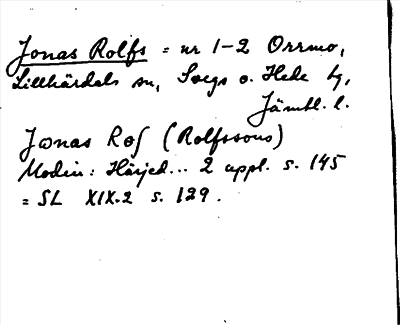 Jonas Rolfs = nr 1-2 Orrmo,
Lillhärdals sn, Svegs o. Hede tg,
Jämtl. l.
Jonas Rof (Rolfssons)
Modin: Härjed... 2 uppl. s. 145
= SL XIX.2 s. 129.